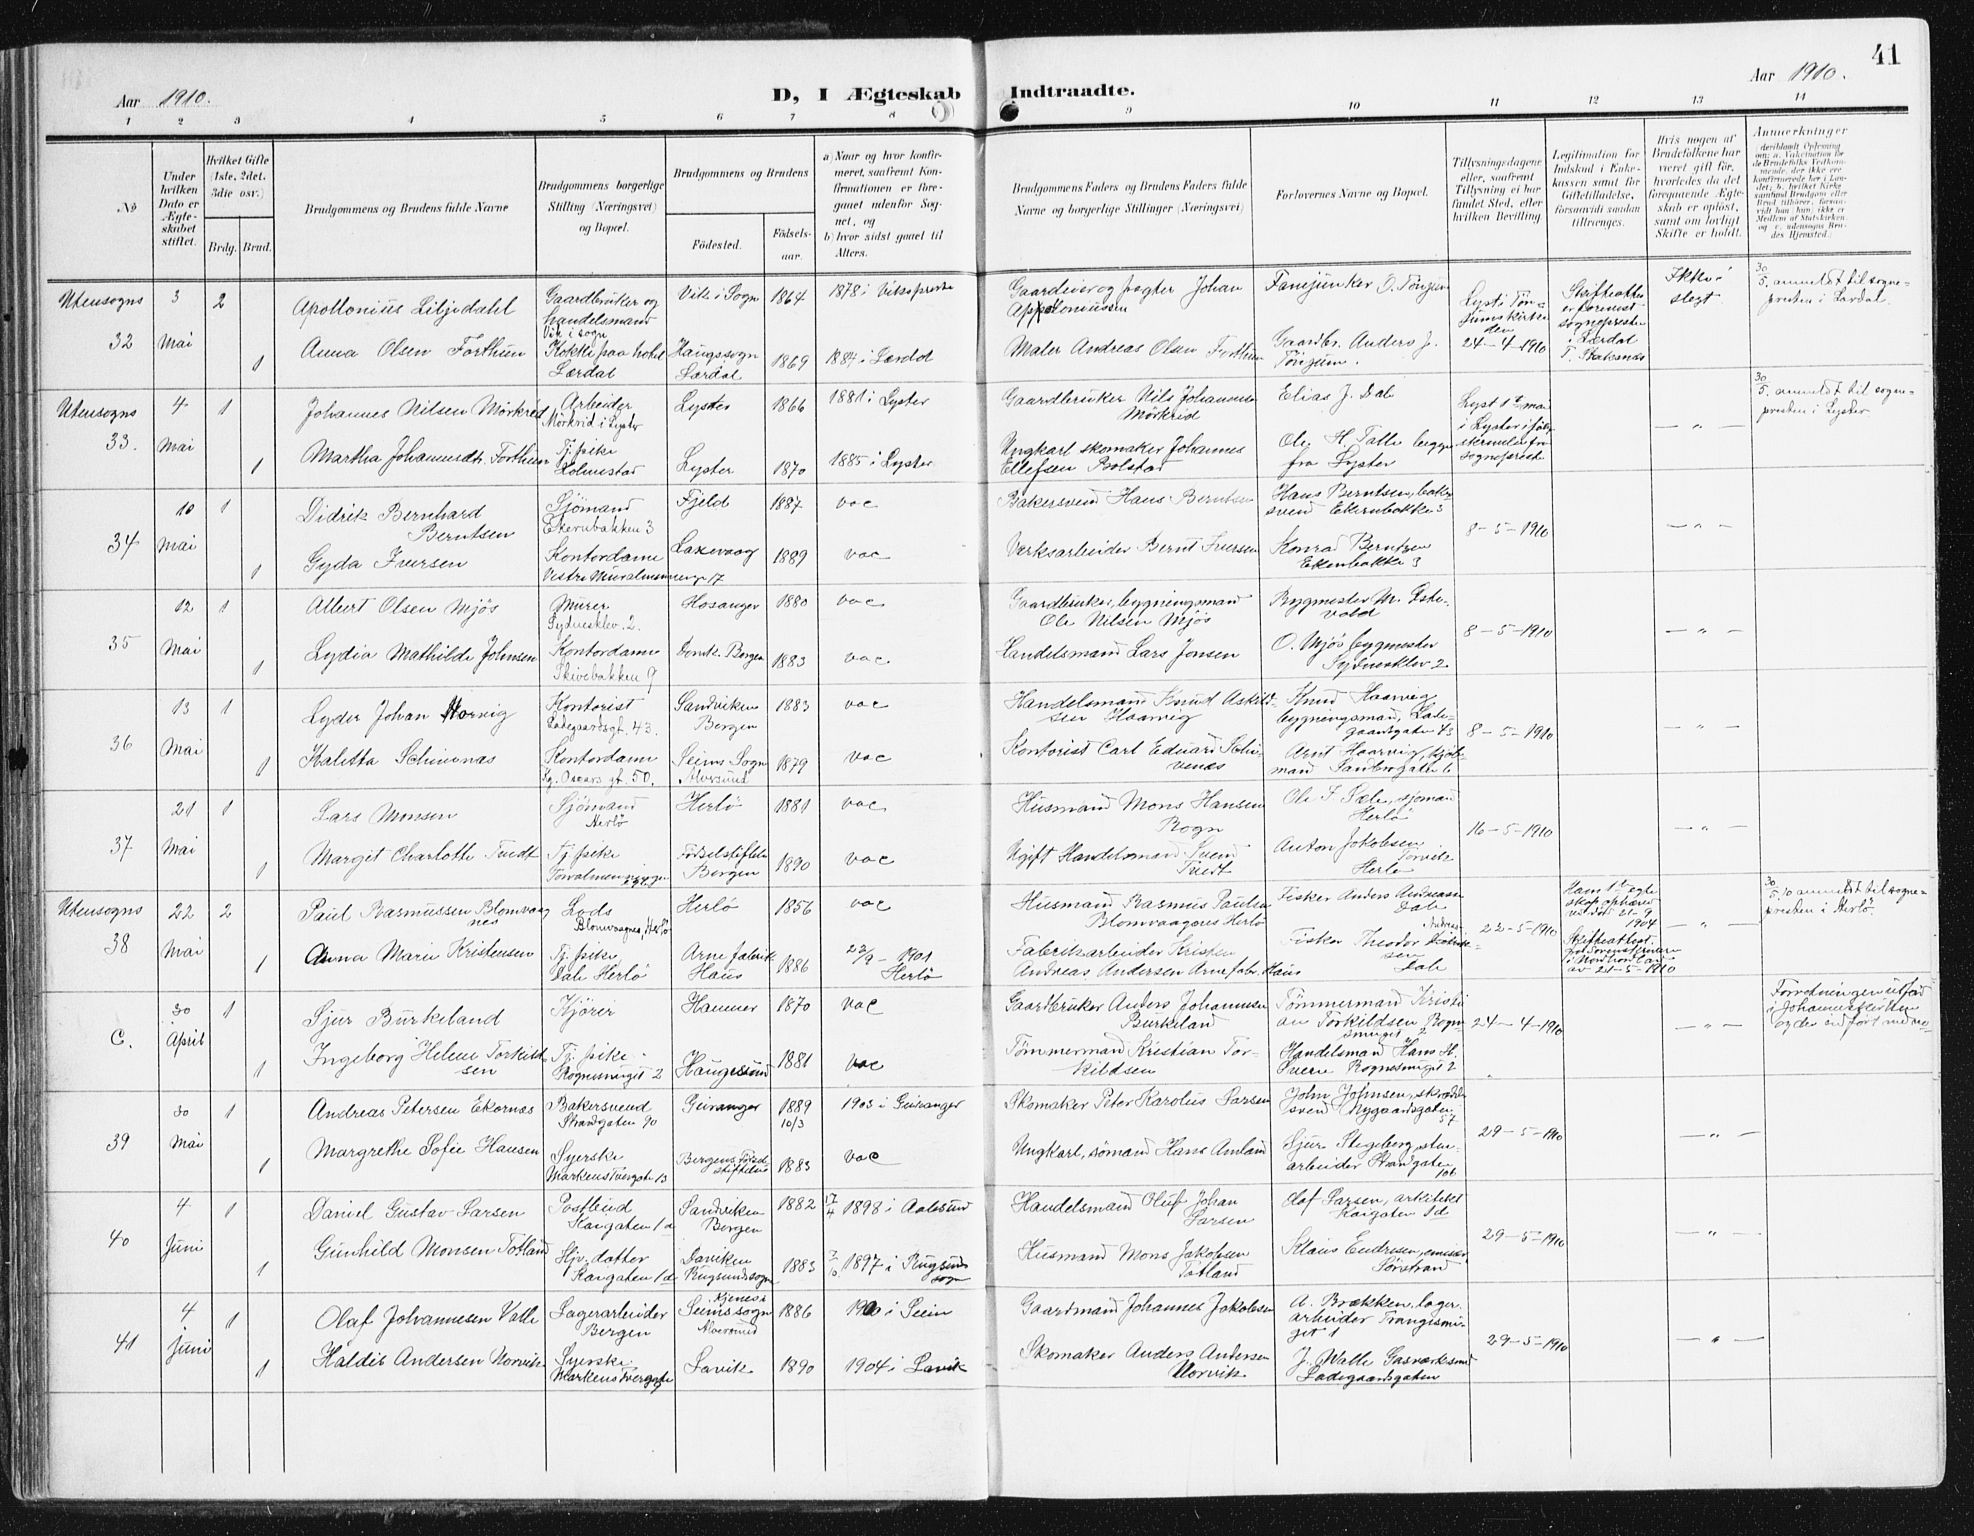 41
Aar 1910.
D, I Ægteskab Indtraadte.
Aar 1910.
1 2 3 4 5 6 7 8 9 10 11 12 13 14
No
Under hvilken Dato er Ægteskabet stiftet.
Hvilket Gifte (1ste, 2det, 3die osv.)
Brdg. Brud.
Brudgommens og Brudens fulde Navne
Brudgommens borgerlige Stilling (Næringsvei) og Bopæl.
Brudgommens og Brudens
Fødested.
Fødselsaar.
a) Naar og hvor konfirmeret, saafremt Konfirmationen er foregaaet udenfor Sognet, og
b) hvor sidst gaaet til Alters.
Brudgommens Faders og Brudens Faders fulde Navne og borgerlige Stillinger (Næringsvei)
Forlovernes Navne og Bopæl.
Tillysningsdagene eller, saafremt Tillysning ei har fundet Sted, efter hvilken Bevilling
Legitimation for Indskud i Enkekassen samt for Giftetilladelse, forsaavidt saadan tiltrænges.
Hvis nogen af Brudefolkene har været gift før, hvorledes da det foregaaende Ægteskab er opløst, samt om lovligt Skifte er holdt.
Anmerkninger
Utensogns 32
3 Mai
2
Apollonius Liljedahl
Gaardbruker og handelsmand Vik i Sogn
Vik i Sogn
1864
1878 i Vik
Gaardeier og Johan Appoloniussen
Fanejunker O. Tönjum
24-4-1910
Ikke i slegt
30/5. anmeldt til sognepresten i Lærdal.
1
Anna Olsen Forthun
Kokke paa hotel Lærdal
Haugssogn Lærdal
1869
1884 i Lærdal
Maler Andreas Olsen Forthun
Gaardbr. Anders J. Tönjum.
Utensogns 33.
4 Mai
1
Johannes Nilsen Mörkrid
Arbeider Mörkrid i Lyster
Lyster
1866
1881 i Lyster
Gaardbruker Nils Johannesen Mörkrid
Elias J. Dal
Lyst 1te mai i Lyster
— " —
30/5. anmeldt til sognepresten i Lyster
1
Martha Johannesdtr. Forthun
Tj. pike
Lyster
1870
1885 i Lyster
Ungkarl skomaker Johannes Ellefsen Bolstad
Ole H. Talle begge fra Lyster
34
10 Mai
1
Didrik Bernhard Berntsen
Sjömand Ekernbakken 3
Fjeld
1887
vac
Bakersvend Hans Berntsen
Hans Berntsen, bakersvend Ekernbakke 3
8-5-1910
— " —
1
Gyda Iversen
Kontordame Vestre Muralmenning 17
Laxevaag
1889
vac
Verksarbeider Bernt Iversen
Konrad Berntsen Ekernbakke 3
35
12 Mai
1
Albert Olsen Mjös
Murer Sydneskl. 2.
Hosanger
1880
vac
Gaardbruker, bygningsmand Ole Nilsen Mjös
Bygmester M. Estevold
8-5-1910
— " —
1
Lydia Mathilde Johnsen
Kontordame Skivebakken 9
Domk. Bergen
1883
vac
Handelsmand Lars Jonsen
O. Mjös bygmester Sydneskl. 2
36
13 Mai
1
Lyder Johan Horvig
Kontorist Ladegaardsgt. 43.
Sandviken Bergen
1883
vac
Handelsmand Knud Askildsen Haarvig
Knud Haarvig bygningsmand, Ladegaardsgate 43
8-5-1910
— " —
1
Kaletta Schivenæs
Kontordame Kg. Oscars gt. 50.
Seims Sogn Alversund
1879
vac
Kontorist Carl Eduard Schivenæs
Arnt Haarvig, kjöbmand Sandbrogaten 6
37
21 Mai
1
Lars Monsen
Sjömand Herlö
Herlö
1881
vac
Husmand Mons Hansen Rogn
Ole I. Sæle, sjömand Herlö
16-5-1910
— " —
1
Margit Charlotte Tvedt
Tj. pike Torvalmenning
Födselstiftelsen Bergen
1890
vac
Ugift Handelsmand Svend Tvedt
Anton Jakobsen Torvik Herlö
Utensogns 38
22 Mai
2
Paul Rasmussen Blomvaagnes
Lods Blomvaagnes, Herlö
Herlö
1856
vac
Husmand Rasmus Paulsen Blomvaagnes Herlö
Fisker Anders Andreassen Dale
22-5-1910
Hans 1ste egteskap ophævet ved död 21-9 1904
Skifteattest fra Sorenskriveren i Nordhordland av 21-5-1910
— " —
30/5.10 anmeldt til sognepresten i Herlö
1
Anna Marie Kristensen
Tj. pike Dale Herlö
Arne fabrik Haus
1886
23/9 - 1901 Herlö
Fabrikarbeider Kristen Andreas Andersen Arne fabr. Haus
Fisker Theodor Andreassen Dale
C.
30 April
1
Sjur Burkeland
Kjörer
Hammer
1870
vac
Gaardbruker Anders Johannesen Burkeland
Tömmermand Kristian Torkildsen Rognsmuget 2
24-4-1910
— " —
Forretningen utförd i Johanneskirken og der indfört med no-
1
Ingeborg Helene Torkildsen
Tj. pike Rognesmuget 2
Haugesund
1881
vac
Tömmermand Kristian Torkildsen
Handelsmand Hans H. Sveen Rognesmuget 2
39
30 Mai
1
Andreas Petersen Ekornæs
Bakersvend Strandgaten 90
Geiranger
1889 10/3
1903 i Geiranger
Skomaker Peter Karolus Larsen
John Johnsen, skræddersvend Nygaardsgaten 57
29-5-1910
— " —
1
Margrethe Sofie Hansen
Syerske Markens Tvergate 13
Bergens Födselsstiftelse
1883
vac
Ungkarl, sömand Hans Amland
Sjur Stegeberg, stenarbeider Strandgaten 106
40
4 Juni
1
Daniel Gustav Larsen
Postbud Kaigaten 1d
Sandviken Bergen
1882
17/4 1898 i Aalesund
Handelsmand Oluf Johan Larsen
Olaf Larsen, arkitekt Kaigaten 1d
29-5-1910
— " —
1
Gunhild Monsen Totland
Hj. datter Kaigaten 1d
Daviken Rugsundssogn
1883
1897 i Rugsund sogn
Husmand Mons Jakobsen Totland
Klaus Endresen, emissær Sörstrand
41
4 Juni
1
Olaf Johannesen Valle
Lagerarbeider Bergen
Seims sogn Alversund
1886
1900 i Seim
Gaardmand Johannes Jakobsen
A. Brækken, lagerarbeider Trangesmuget 1
29-5-1910
— " —
1
Haldis Andersen Norvik
Syerske Markens Tvergate
Lavik
1890
1904 i Lavik
Skomaker Anders Andersen Norvik
J. Valle Gasværksmd Ladegaardsgaten